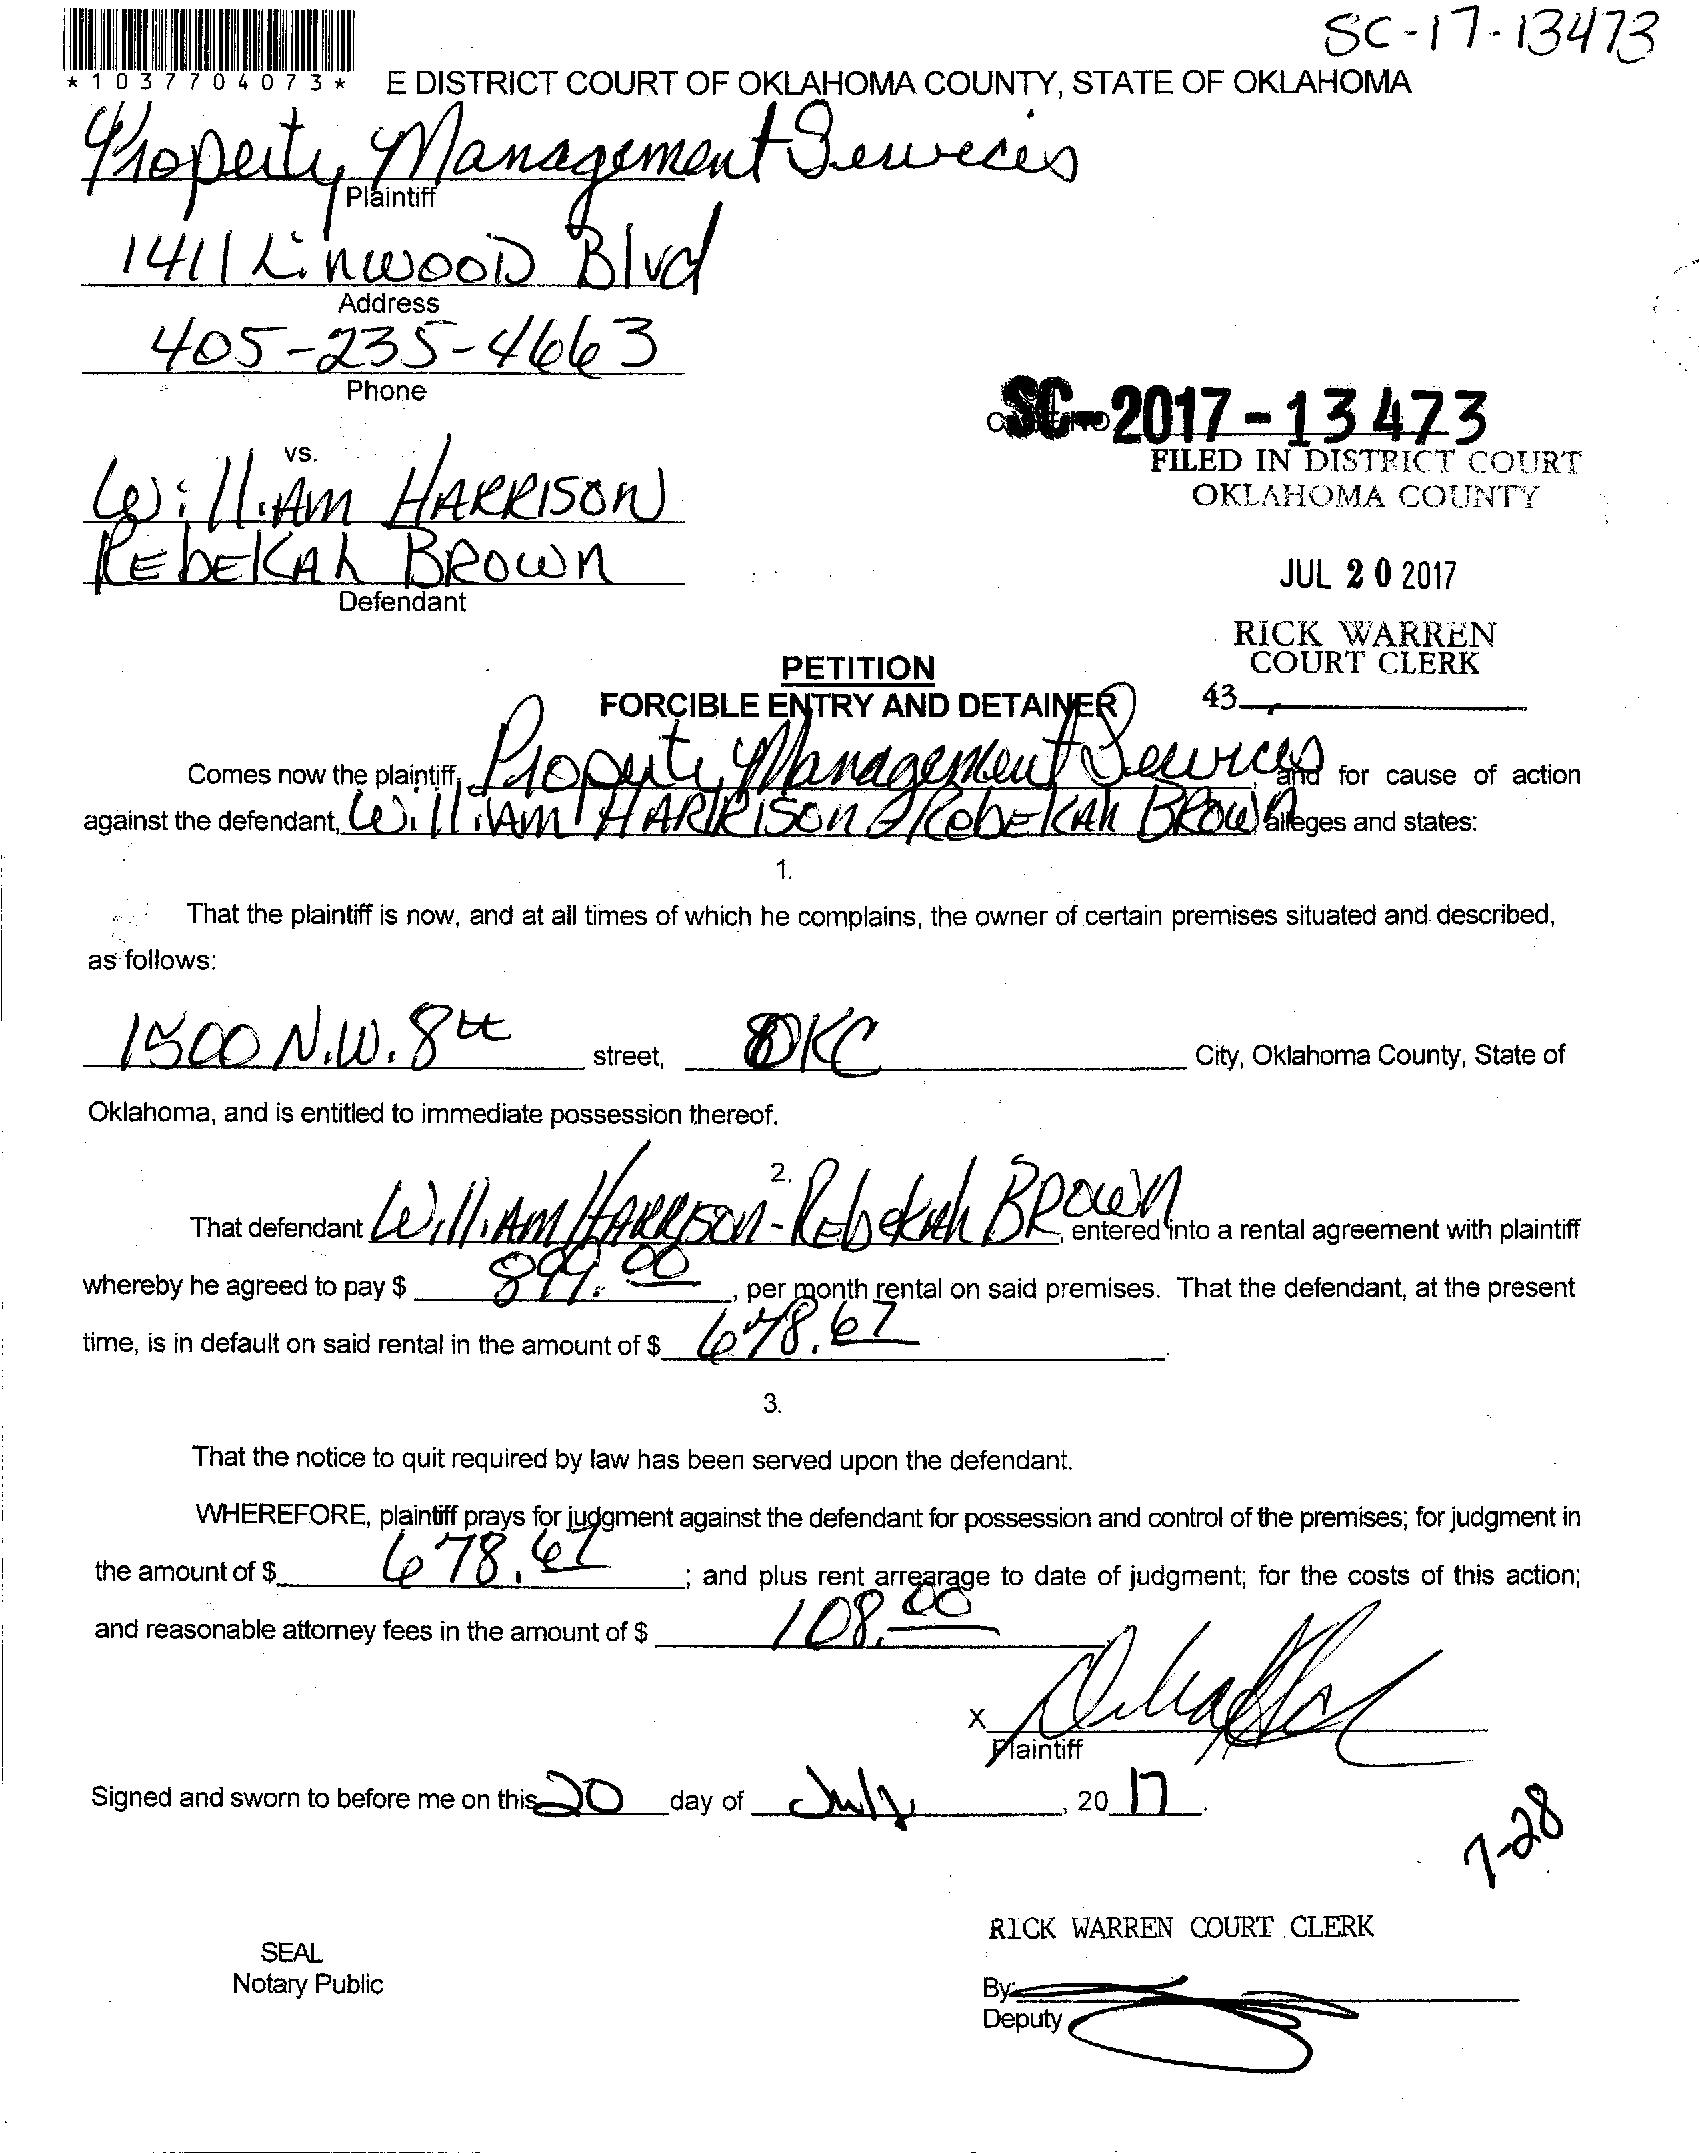 SC-17-13473
*1037704073*
E DISTRICT COURT OF OKLAHOMA COUNTY, STATE OF OKLAHOMA
Property Management Services
Plaintiff
1411 Linwood Blvd
Address
405-235-4663
Phone
SC-2017-13473
FILED IN DISTRICT COURT
OKLAHOMA COUNTY
vs.
William HARRISON
REbEKAh BROWN
Defendant
JUL 20 2017
RICK WARREN
COURT CLERK
43
PETITION
FORCIBLE ENTRY AND DETAINER
Comes now the plaintiff, Property Management Services, and for cause of action
against the defendant, William HARRISON & REbEKAh BROWN alleges and states:
1.
That the plaintiff is now, and at all times of which he complains, the owner of certain premises situated and described,
as follows:
1500 N.W. 8th street, OKC City, Oklahoma County, State of
Oklahoma, and is entitled to immediate possession thereof.
2.
That defendant William HARRISON - Rebekah BROWN, entered into a rental agreement with plaintiff
whereby he agreed to pay $ 899.00, per month rental on said premises. That the defendant, at the present
time, is in default on said rental in the amount of $ 678.67.
3.
That the notice to quit required by law has been served upon the defendant.
WHEREFORE, plaintiff prays for judgment against the defendant for possession and control of the premises; for judgment in
the amount of $ 678.67; and plus rent arrearage to date of judgment; for the costs of this action;
and reasonable attorney fees in the amount of $ 108.00
X
Plaintiff
Signed and sworn to before me on this 20 day of July, 2017.
7-28
RICK WARREN COURT CLERK
SEAL
Notary Public
By:
Deputy